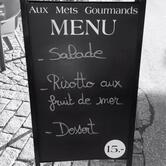 Aux Mets Gourmands
MENU
- Salade
- Risotto aux
fruit de mer
- Dessert
15.-